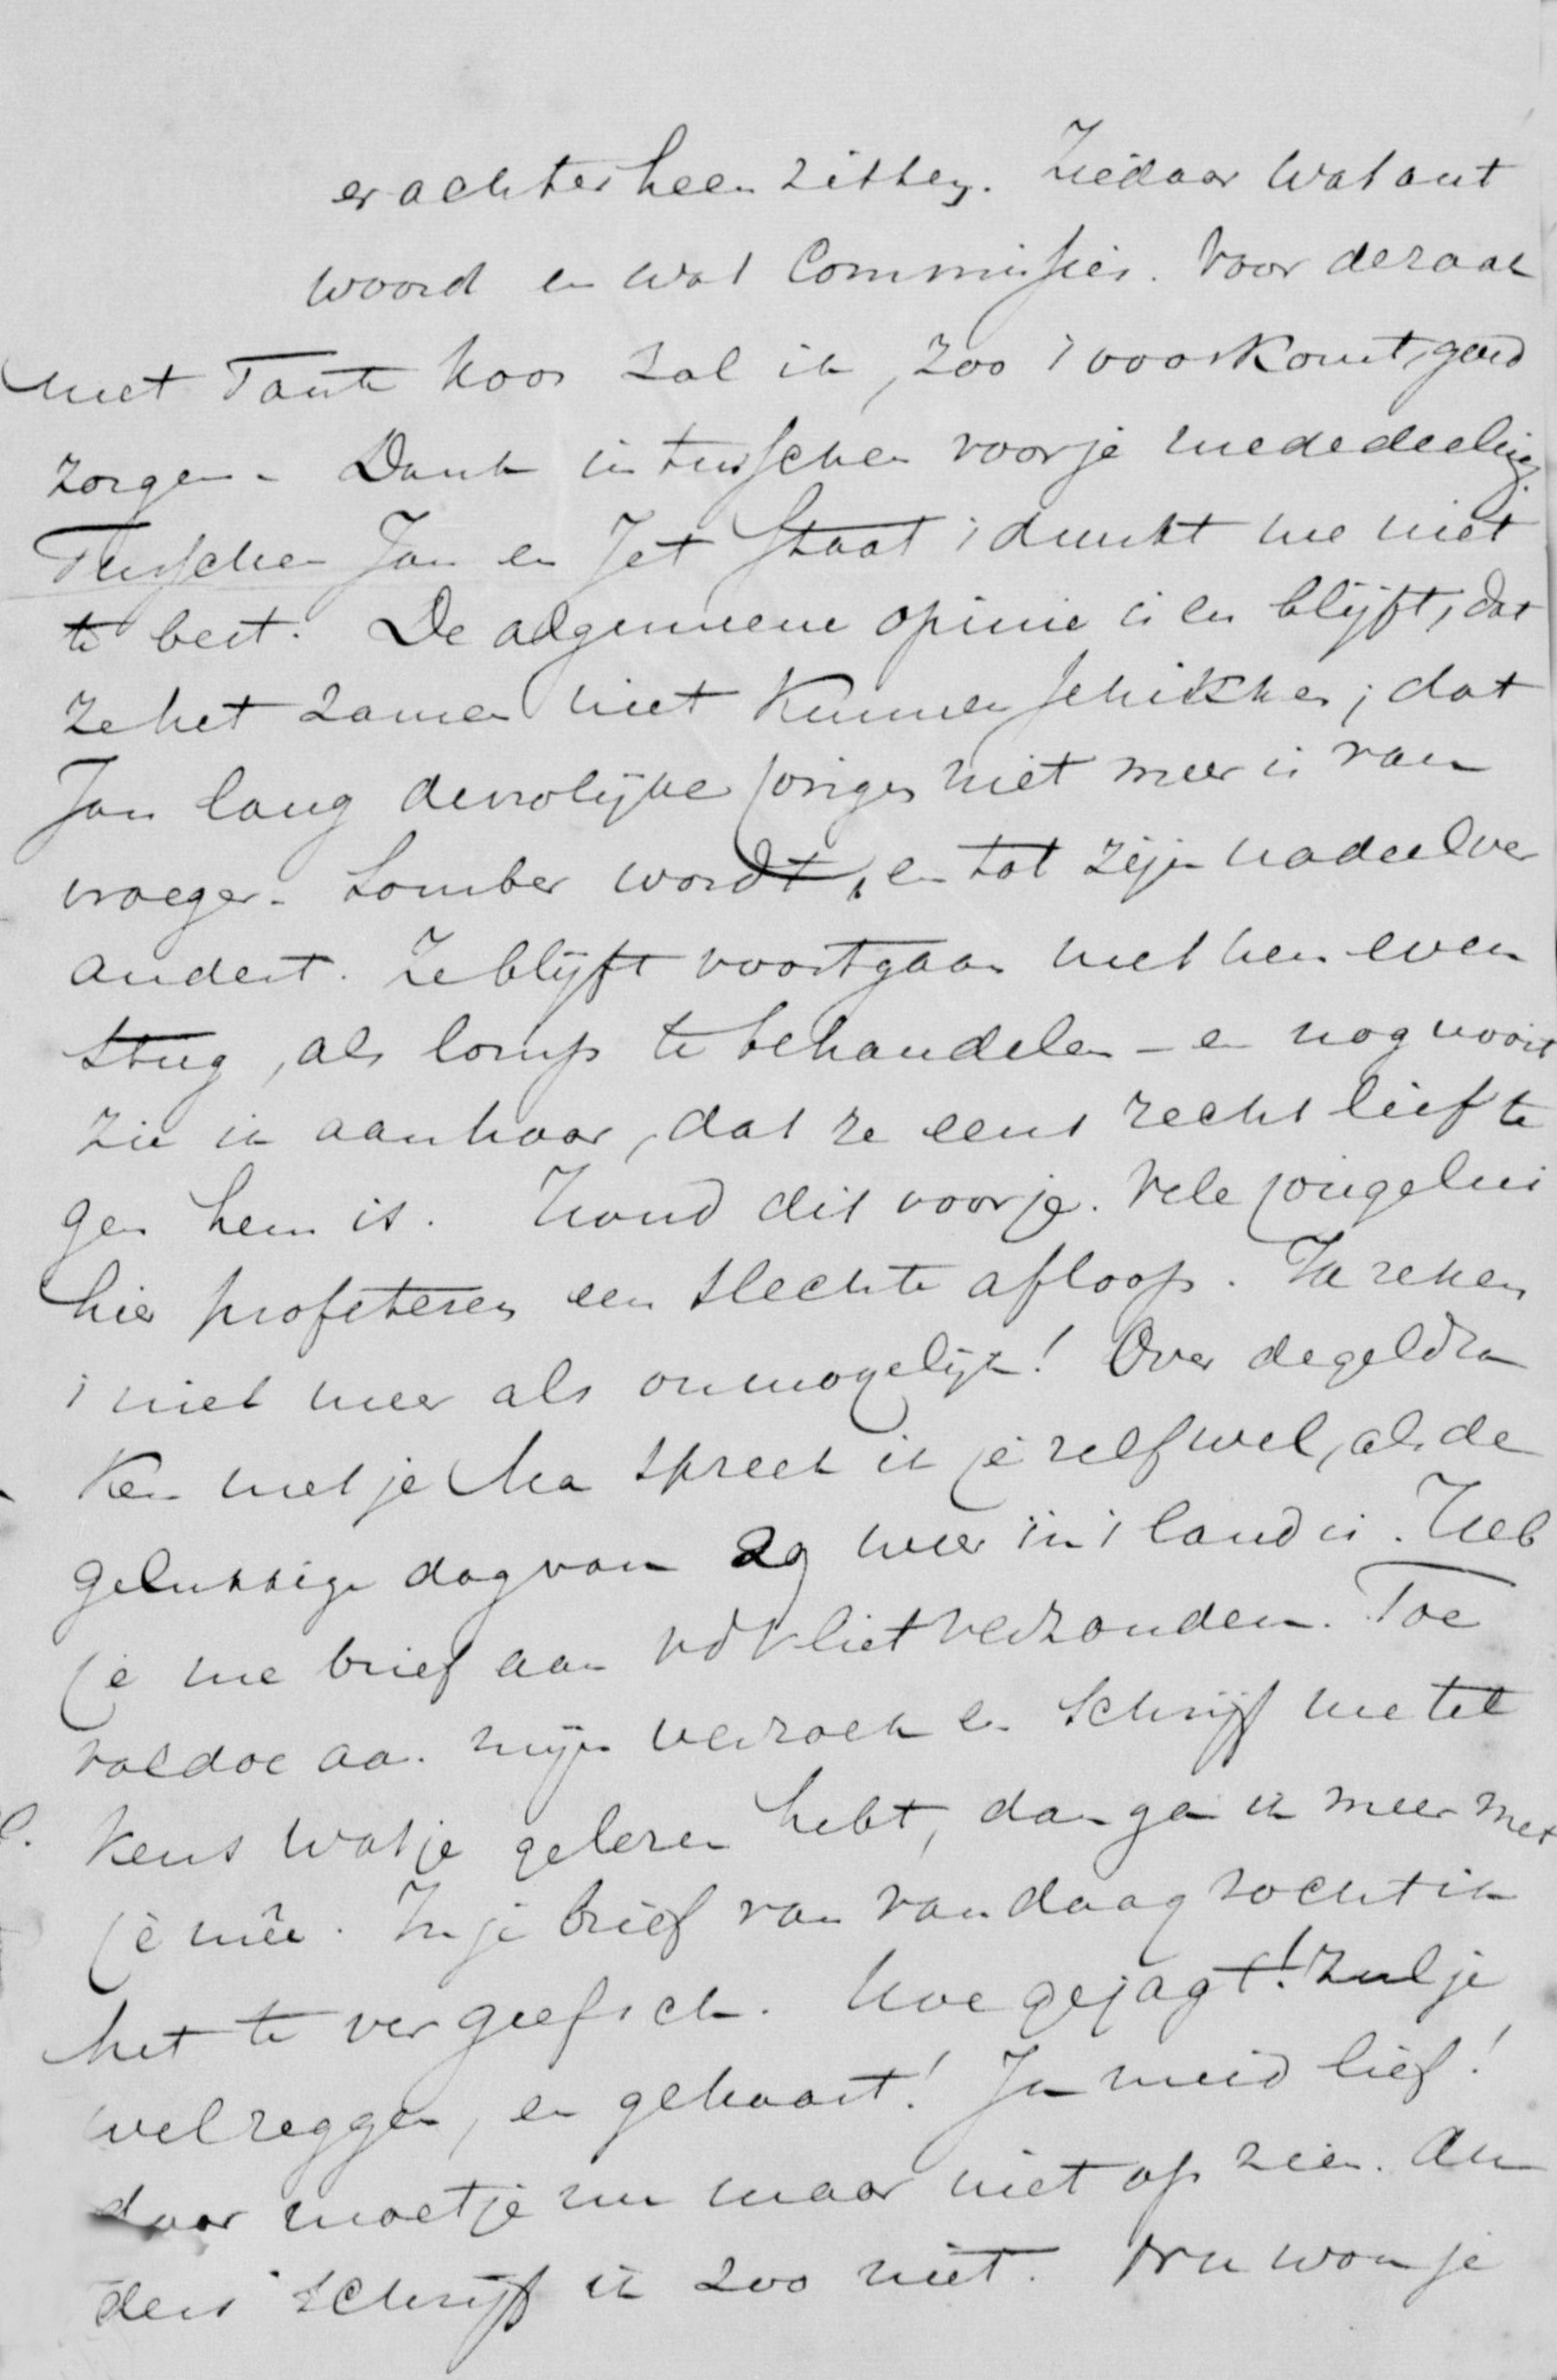 er achterheen zitten. Ziedaar wat ant
woord en wat Commissies. Voor de zaak
met Tante Koos zal ik, zoo 't voorkomt, goed
zorgen. Dank intusschen voor je mededeeling
Tusschen Jan en Jet staat 't dunkt me niet
te best. De algemeene opinie is en blijft, dat
ze het zamen niet kunnen schikken; dat
Jan lang de vrolijke jongen niet meer is van
vroeger. Somber wordt, en tot zijn nadeel ver
andert. Ze blijft voortgaan met hem even
stug, als lomp te behandelen – en nog nooit
zie ik aan haar, dat ze eens recht lief te
gen hem is. Houd dit voor je. Vele jongelui
hier profeteren een slechte afloop. Ik reken
't niet meer als onmogelijk! Over de geldza
ken met je Ma spreek ik je zelf wel, als de
gelukkige dag van 29 weer in 't land is. Heb
je me brief aan vd Vliet verzonden. Toe
voldoe aan mijn verzoek en schrijf me tel
kens wat je gelezen hebt, dan ga ik meer met
je meê. In je brief van vandaag zocht ik
het te vergeefsch. Hoe gejagt! zul je
wel zeggen, en gehaast! Ja meid lief!
daar moet je nu maar niet op zien. An
ders schrijf ik zoo niet. Nu wou je